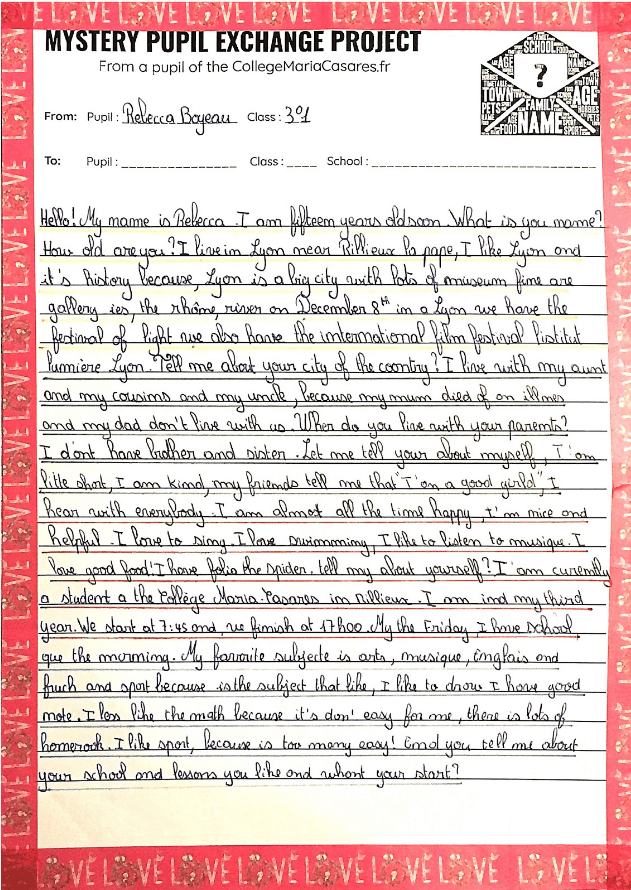 LOVE LOVE LOVE LOVE LOVE LOVE LOVE
MYSTERY PUPIL EXCHANGE PROJECT
From a pupil of the CollegeMariaCasares.fr
SCHOOL
AGE
NAME
TOWN
PETS
FAMILY
AGE
FOOD
NAME
SPORT
?
From: Pupil : Rebecca Boyeau Class : 3°1
To: Pupil : ________________ Class : ____ School : ______________________________
Hello! My name is Rebecca . I am fifteen years old soon . What is you name?
How old are you? I live in Lyon near Rillieux la pape, I like Lyon and
it's history because, Lyon is a big city with lots of museum fine are
gallery ies, the rhône, river on December 8th in a Lyon we have the
festival of light we also have the international film festival l'institut
lumiere Lyon. Tell me about your city of the coontry? I live with my aunt
and my cousins and my uncle, because my mum died of an illnes
and my dad don't live with us. When do you live with your parents?
I dont have brother and sister . Let me tell your about myself, I'am
litte short, I am kind, my friends tell me that "I'on a good girld", I
hear with everybody. I am almost all the time happy, I'm nice and
helpful. I love to sing I love swimmning, I like to listen to musique. I
love good food! I have folia the spider. tell my about yourself? I'am curently
a student a the Collège Maria Casares in Rillieux. I am ind my third
year. We start at 7:45 and, we finish at 17h00. My the Friday, I have school
que the morning. My favorite subjecte is arts, musique, Englais and
fruch and sport because is the subject that like, I like to drow I have good
note. I less like the math because it's don' easy for me, there is lots of
homerook. I like sport, because is too many easy! End you tell me about
your school and lessons you like and whont your start?
LOVE LOVE LOVE LOVE LOVE LOVE LOVE